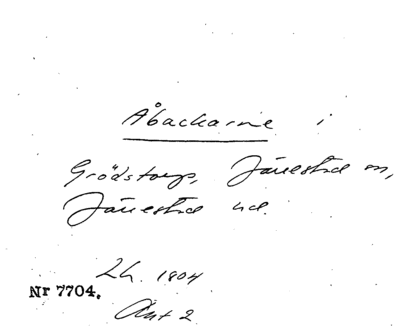 Åbackarne i
Grödstorp, Järrestad sn,
Järrestad hd.
Lh. 1804
Nr 7704.
Akt 2